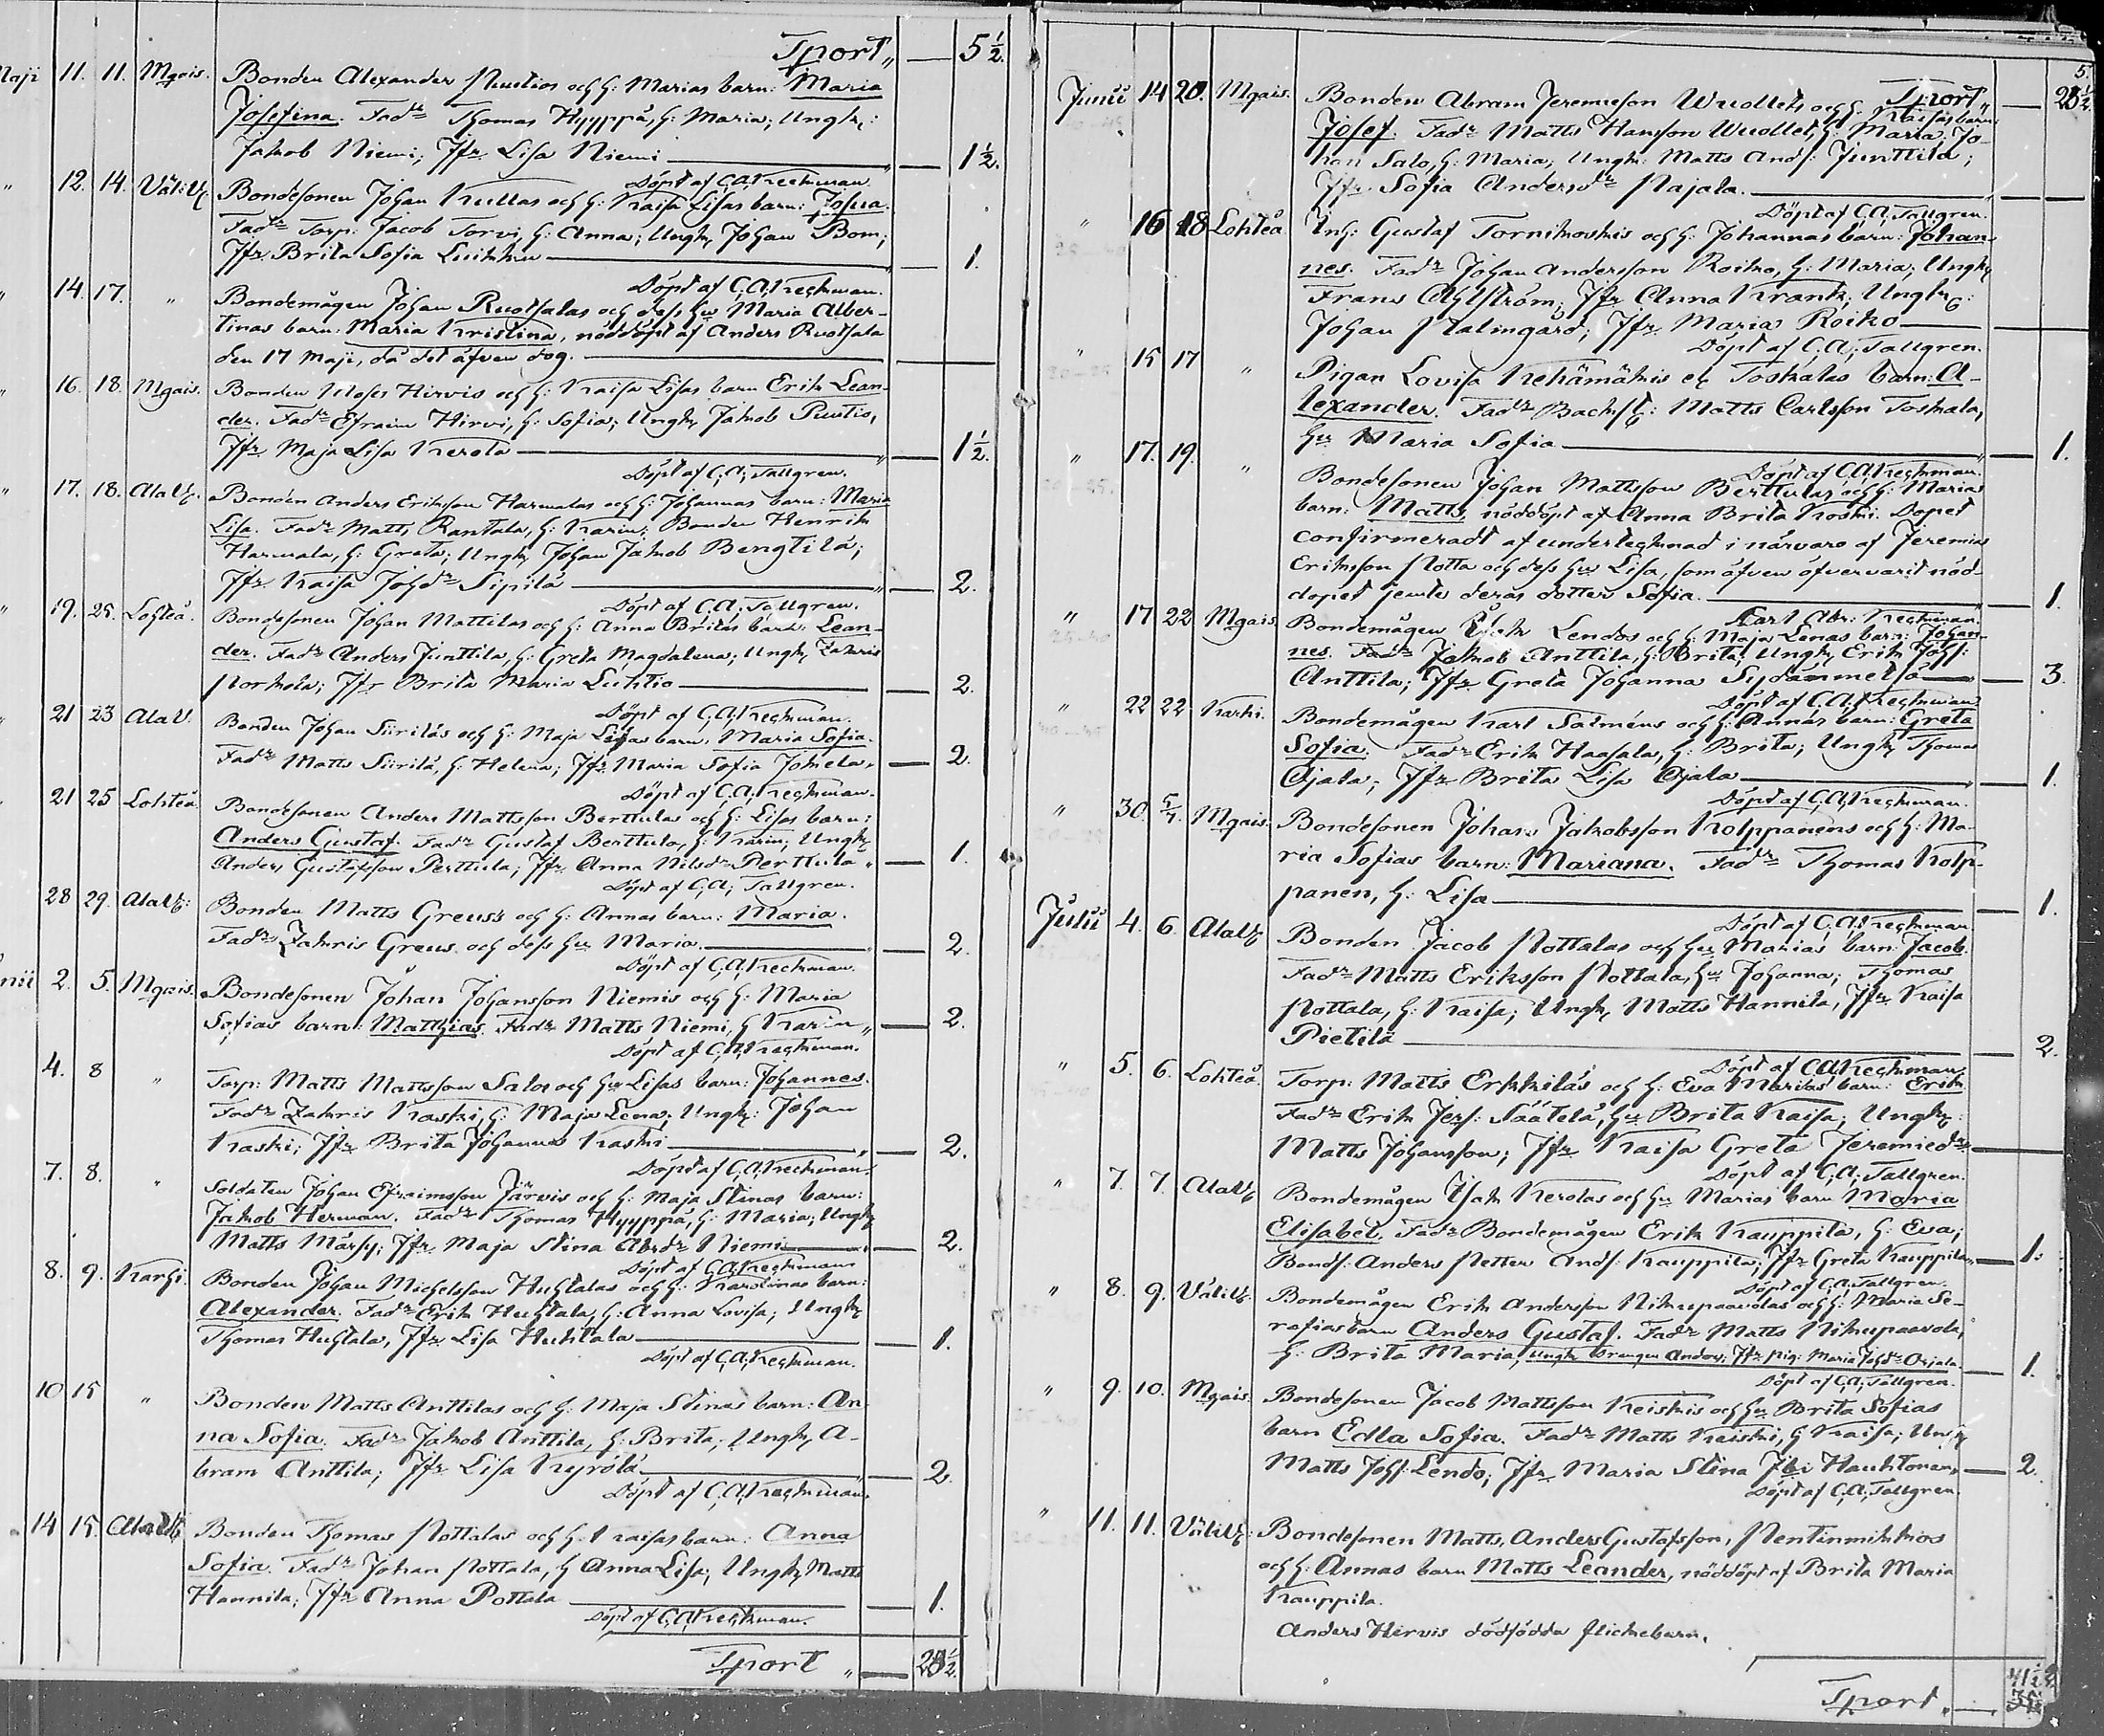 Tport „ — 5 1/2.
Maji 11. 11. Mgais. Bonden Alexander Puutios och h: Marias barn: Maria
Josefina. Fadr Thomas Hyyppä, h: Maria; Ungk:
Jakob Niemi; Jfr Lisa Niemi — 1 1/2.
Döpt af C, A, Keckman.
„ 12. 14. Väli V. Bondesonen Johan Kullas och h: Kaisa Lisas barn: Josua.
Fadr Torp: Jacob Torvi, h: Anna; Ungk, Johan Bom;
Jfr Brita Sofia Luikku — 1.
Döpt af C, A, Keckman.
„ 14. 17. „ Bondemågen Johan Ruotsalas och dess hu Maria Alber-
tinas barn: Maria Kristina, nöddöpt af Anders Ruotsala
den 17 Maji, då det äfven dog. —
„ 16. 18. Mgais. Bonden Moses Hirvis och h: Kaisa Lisas barn Erik Lean-
der. Fadr Efraim Hirvi, h: Sofia; Ungk, Jakob Puutio,
Jfr Maja Lisa Kerola — 1 1/2.
Döpt af C, A, Tallgren.
„ 17. 18. Ala V. Bonden Anders Eriksson Harmalas och h: Johannas barn: Maria
Lisa. Fadr Matts Rantala, h: Karin; Bonden Henrik
Harmala, h: Greta; Ungk, Johan Jakob Bengtilä;
Jfr Kaisa Johdr Sipilä — 2.
Döpt af C, A, Tallgren.
„ 19. 25. Lohteå. Bondesonen Johan Mattilas och h: Anna Britas barn: Lean-
der. Fadr Anders Junttila, h: Greta Magdalena; Ungk, Zakris
Korkola; Jfr Brita Maria Luhtio — 2.
Döpt af C, A, Keckman.
„ 21 23 Ala V. Bonden Johan Siiriläs och h: Maja Lisas barn: Maria Sofia.
Fadr Matts Siirilä, h: Helena; Jfr Maria Sofia Jokela „ — 2.
Döpt af C, A, Keckman.
„ 21 25 Lohteå Bondesonen Anders Mattsson Berttulas och h: Lisas barn:
Anders Gustaf. Fadr Gustaf Berttula, h: Karin; Ungk,
Anders Gustafsson Perttula; Jfr Anna Nilsdr Perttula „ — 1.
Döpt af C, A, Tallgren.
28 29. Ala V: Bonden Matts Greus's och h: Annas barn: Maria.
Fadr Zakris Greus och dess hu Maria. — 2.
Döpt af C, A, Keckman.
Junii 2. 5. Mgais. Bondesonen Johan Johansson Niemis och h: Maria
Sofias barn: Matthias. Fadr Matts Niemi, h Karin „ — 2.
Döpt af C, A, Keckman.
4. 8 „ Torp: Matts Mattsson Salos och hu Lisas barn: Johannes.
Fadr Zakris Kaski, h: Maja Lena; Ungk: Johan
Kaski; Jfr Brita Johanna Kaski — 2.
Döpt af C, A, Keckman.
7. 8. „ Soldaten Johan Efraimsson Järvis och h: Maja Stinas barn:
Jakob Herman. Fadr Thomas Hyyppä, h: Maria; Ungk
Matts Märsy; Jfr Maja Stina Abrdr Niemi — 2.
Döpt af C, A, Keckman
8. 9. Karhi. Bonden Johan Michelsson Huhtalas och h: Karolinas barn:
Alexander. Fadr Erik Huhtala, h: Anna Lovisa; Ungk
Thomas Huhtala, Jfr Lisa Huhtala — 1.
Döpt af C, A, Keckman.
10 15 „ Bonden Matts Anttilas och h: Maja Stinas barn: An-
na Sofia. Fadr Jakob Anttila, h: Brita; Ungk, A-
bram Anttila; Jfr Lisa Kyrölä — 2.
Döpt af C, A, Keckman.
14 15. Ala V. Bonden Thomas Pottalas och h: Kaisas barn: Anna
Sofia. Fadr Johan Pottala, h Anna Lisa; Ungk, Matts
Hannila; Jfr Anna Pottala — 1.
Döpt af C, A, Keckman.
Tport „ — 28 1/2.
5.
Tport „ — 28 1/2.
Junii 14 20. Mgais. Bonden Abram Jeremieson Wuollets och h: Kaisas barn
Josef. Fadr Matts Hansson Wuollet, h: Maria; Jo-
han Salo, h: Maria; Ungk: Matts Ands: Junttila;
Jfr Sofia Andersdr Pajala. —
Döpt af C, A, Tallgren.
„ 16 18 Lohteå Inh: Gustaf Tornikoskis och h: Johannas barn: Johan-
nes. Fadr Johan Andersson Roiko, h: Maria; Ungk,
Frans Ahlström; Jfr Anna Krank; Ungk,:
Johan Palmgård; Jfr Maria Roiko —
Döpt af C, A, Tallgren.
„ 15 17 „ Pigan Lovisa Kehämäkis ex Toskalas barn: A-
lexander. Fadr Backst: Matts Carlsson Toskala,
hu Maria Sofia — 1.
Döpt af C, A, Keckman.
„ 17. 19. „ Bondesonen Johan Mattsson Berttulas och h: Marias
barn: Matts, nöddöpt af Anna Brita Koski. Dopet
confirmeradt af undertecknad i närvaro af Jeremias
Eriksson Hotta och dess hu Lisa, som äfven öfvervarit nöd-
dopet jemte deras dotter Sofia. — 1.
Karl Abr: Keckman.
„ 17 22 Mgais. Bondemågen Isak Lendos och h: Maja Lenas barn: Johan-
nes. Fadr Jakob Anttila, h: Brita; Ungk, Erik Johs:
Anttila; Jfr Greta Johanna Sydänmetsä — 3.
Döpt af C, A, Keckman
„ 22 22 Karhi. Bondemågen Karl Salméns och h: Annas barn: Greta
Sofia. Fadr Erik Haasala, h: Brita; Ungk, Thomas
Ojala; Jfr Brita Lisa Ojala — 1.
Döpt af C, A, Keckman.
„ 30. 5/7. Mgais. Bondesonen Johan Jakobsson Kolppanens och h: Ma-
ria Sofias barn: Mariana. Fadr Thomas Kolp-
panen, h: Lisa — 1.
Döpt af C, A, Keckman.
Julii 4. 6. Ala V. Bonden Jacob Pottalas och hu Marias barn: Jacob.
Fadr Matts Eriksson Pottala, hu Johanna; Thomas
Pottala, h: Kaisa; Ungk, Matts Hannila, Jfr Kaisa
Pietilä — 2.
Döpt af C, A, Keckman.
„ 5. 6. Lohteå. Torp: Matts Erkkiläs och h: Eva Marias barn: Erik
Fadr Erik Jers: Säätelä, hu Brita Kaisa; Ungk,:
Matts Johansson; Jfr Kaisa Greta Jeremiedr —
Döpt af C, A, Tallgren.
„ 7. 7. Ala V. Bondemågen Isak Kerolas och hu Marias barn Maria
Elisabet. Fadr Bondemågen Erik Kauppila, h: Eva;
Bonds: Anders Petter Ands: Kauppila; Jfr Greta Kauppila „ — 1.
Döpt af C, A, Tallgren.
„ 8. 9. Väli V. Bondemågen Erik Andersson Nikupaavolas och h: Maria Se-
rafias barn Anders Gustaf. Fadr Matts Nikupaavola,
h: Brita Maria, Ungk drengen Anders; Jfr pig: Maria Johdr Ojala — 1.
Döpt af C, A, Tallgren.
„ 9. 10. Mgais. Bondesonen Jacob Mattsson Keiskis och hu Brita Sofias
barn Edla Sofia. Fadr Matts Kaiski, h Kaisa; Ungk
Matts Johs: Lendo; Jfr Maria Stina Hauktonen — 2.
Döpt af C, A, Tallgren.
„ 11. 11. Väli V: Bondesonen Matts, Anders Gustafsson, Pentinmikkos
och h: Annas barn Matts Leander, nöddöpt af Brita Maria
Kauppila.
Anders Hirvis dödfödda flickebarn.
Tport „ — 41 1/2